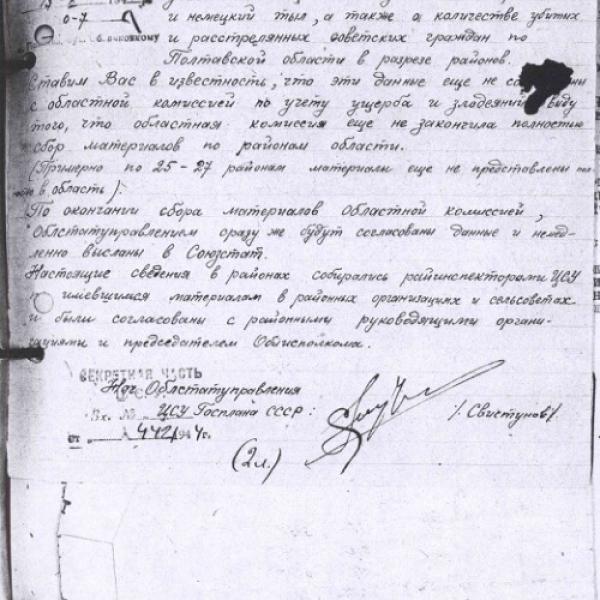 и немецкий тыл, а также о количестве убитых
0-7
и расстрелянных советских граждан по
Полтавской области в разрезе районов.
Ставим Вас в известность, что эти данные еще не
с областной комиссией по учету ущерба и злодеяний
того, что областная комиссия еще не закончила полностью
сбор материалов по районам области.
(Примерно по 25-27 районам материалы еще не представлены
в область).
По окончании сбора материалов Областной комиссией,
Облстатуправлением сразу же будут согласованы данные и немед-
ленно высланы в Союзстат.
Настоящие сведения в районах собирались райинспекторами ЦСУ
имевшимся материалам в районных организациях и сельсоветах
и были согласованы с районными руководящими органи-
зациями и председателем Облисполкома.
СЕКРЕТНАЯ ЧАСТЬ
Нач. Облстатуправления
Вх. № ЦСУ Госплана СССР: /Свистунов/.
от 194 г.
(2л.)